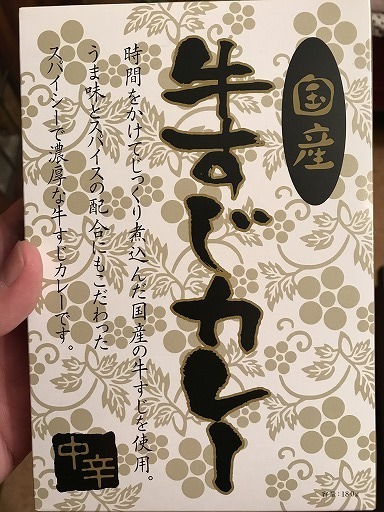 国産
牛すじカレー
時間をかけてじっくり煮込んだ国産の牛すじを使用。
うま味とスパイスの配合にもこだわった
スパイシーで濃厚な牛すじカレーです。
中辛
容量:180g